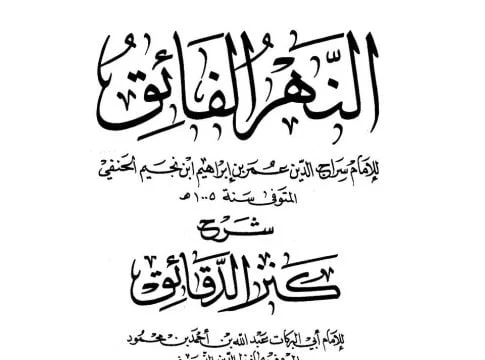 النَّهرُ الفَائِق
للإمَام سِرَاج الدِّين عُمَر بن إبْراهيم ابْن نجيم الحَنفي
المتَوفى سَنة ١٠٠٥ هـ
شَرح
كَنز الدَّقائِق
للإمَام أبي البركات عَبْد الله بن أحمَد بن محمُود